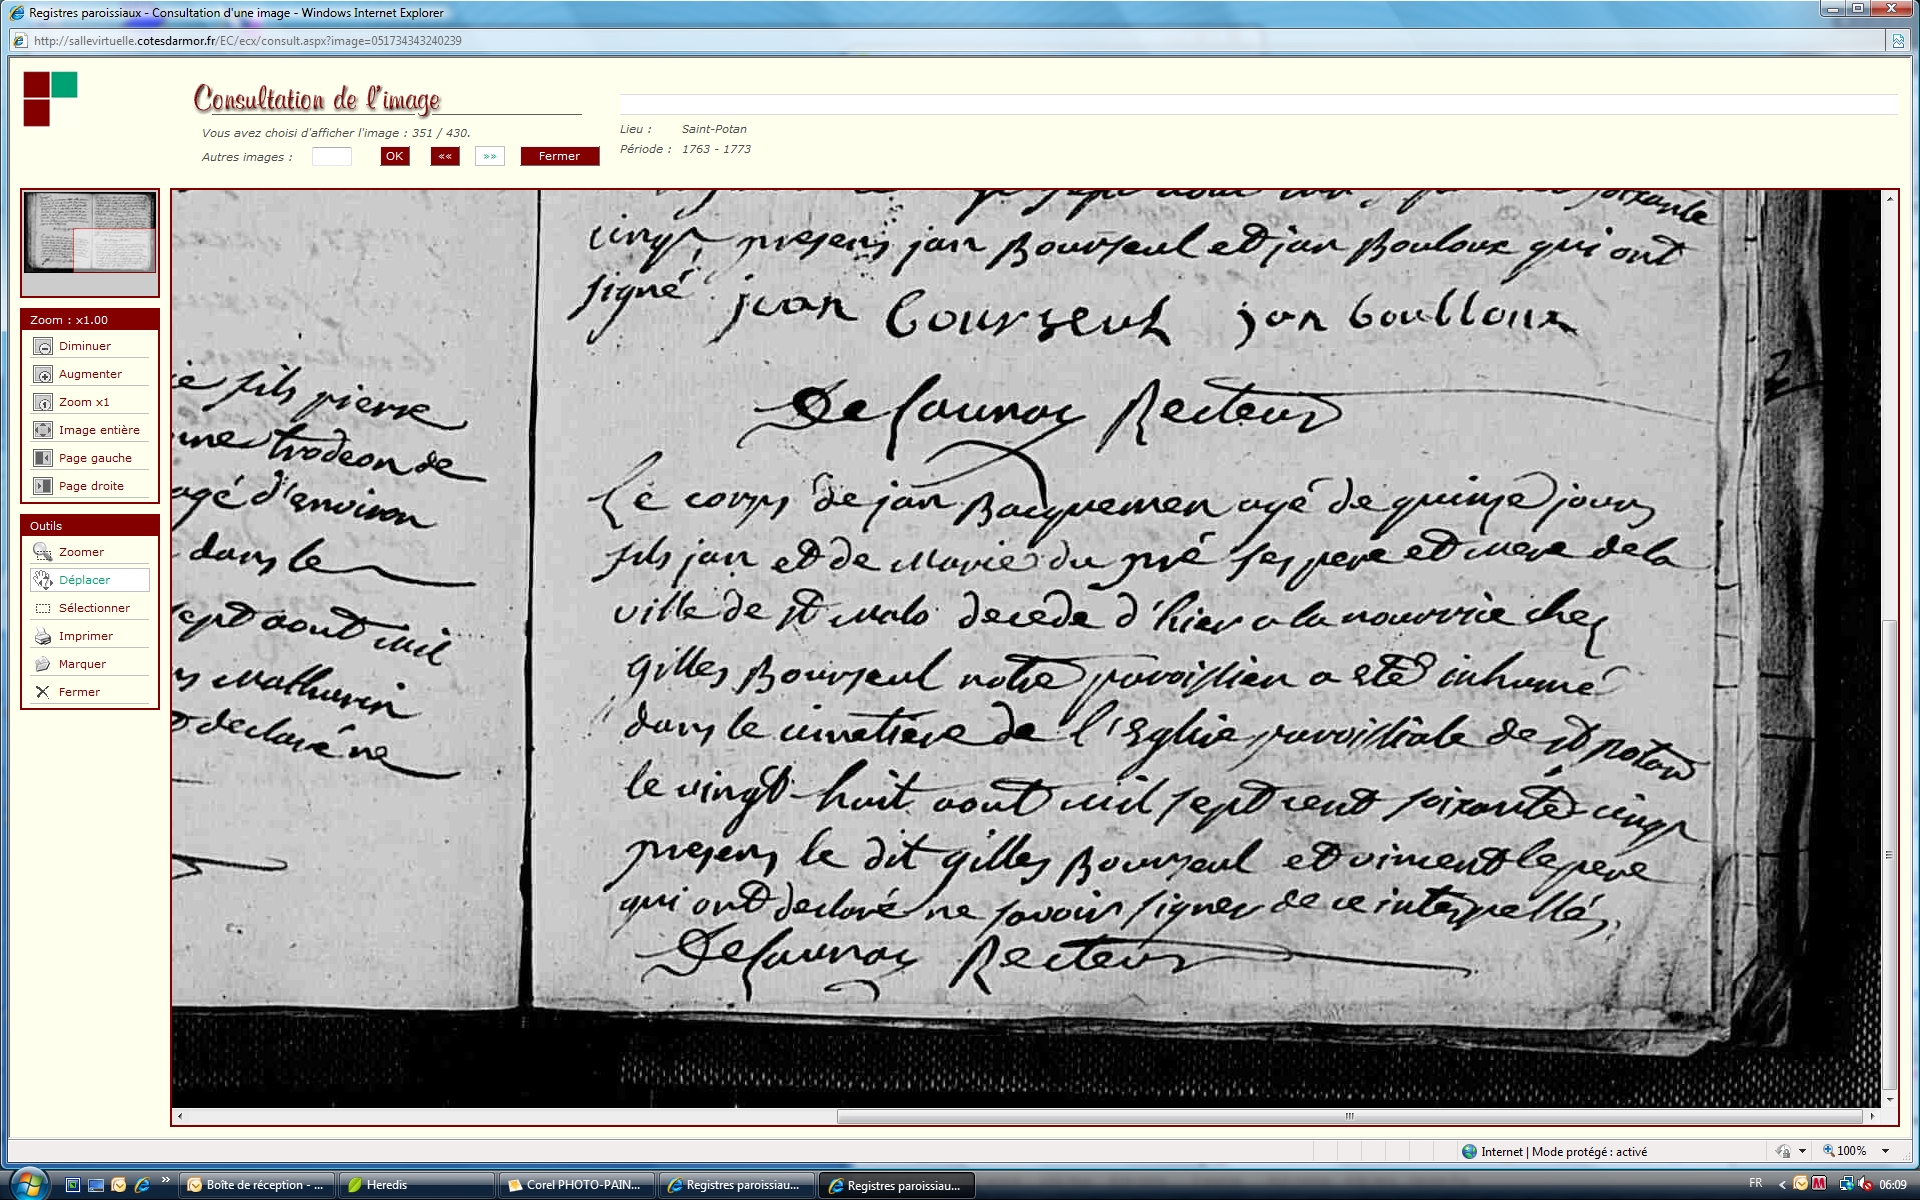 Registres paroissiaux - Consultation d'une image - Windows Internet Explorer
http://sallevirtuelle.cotesdarmor.fr/EC/ecx/consult.aspx?image=051734343240239
Consultation de l'image
Vous avez choisi d'afficher l'image : 351 / 430.
Autres images :
OK
««
»»
Fermer
Lieu : Saint-Potan
Période : 1763 - 1773
Zoom : x1.00
Diminuer
Augmenter
Zoom x1
Image entière
Page gauche
Page droite
Outils
Zoomer
Déplacer
Sélectionner
Imprimer
Marquer
Fermer
fils pierre
trodeon de
agé d'environ
dans le
sept aout mil
Mathurin
declaré ne
soixante
cinq, presens jan Bourseul et jan Bouloux qui ont
signé jean bourseul jan boulloux
Delaunay Recteur
Le corps de jan Bacquemen agé de quinze jours
fils jan et de Marie du pré ses pere et mere de la
ville de st Malo decede d'hier a la nourrie chez
gilles Bourseul notre paroissien a eté inhumé
dans le cimetiere de l'Eglise paroissiale de st potan
le vingt-huit aout mil sept cent soixante-cinq
presens le dit gilles Bourseul et vincent lepere
qui ont declaré ne savoir signer de ce interpellés,
Delaunay Recteur
Internet | Mode protégé : activé
100%
Boîte de réception - ...
Heredis
Corel PHOTO-PAIN...
Registres paroissiau...
Registres paroissiau...
FR
06:09